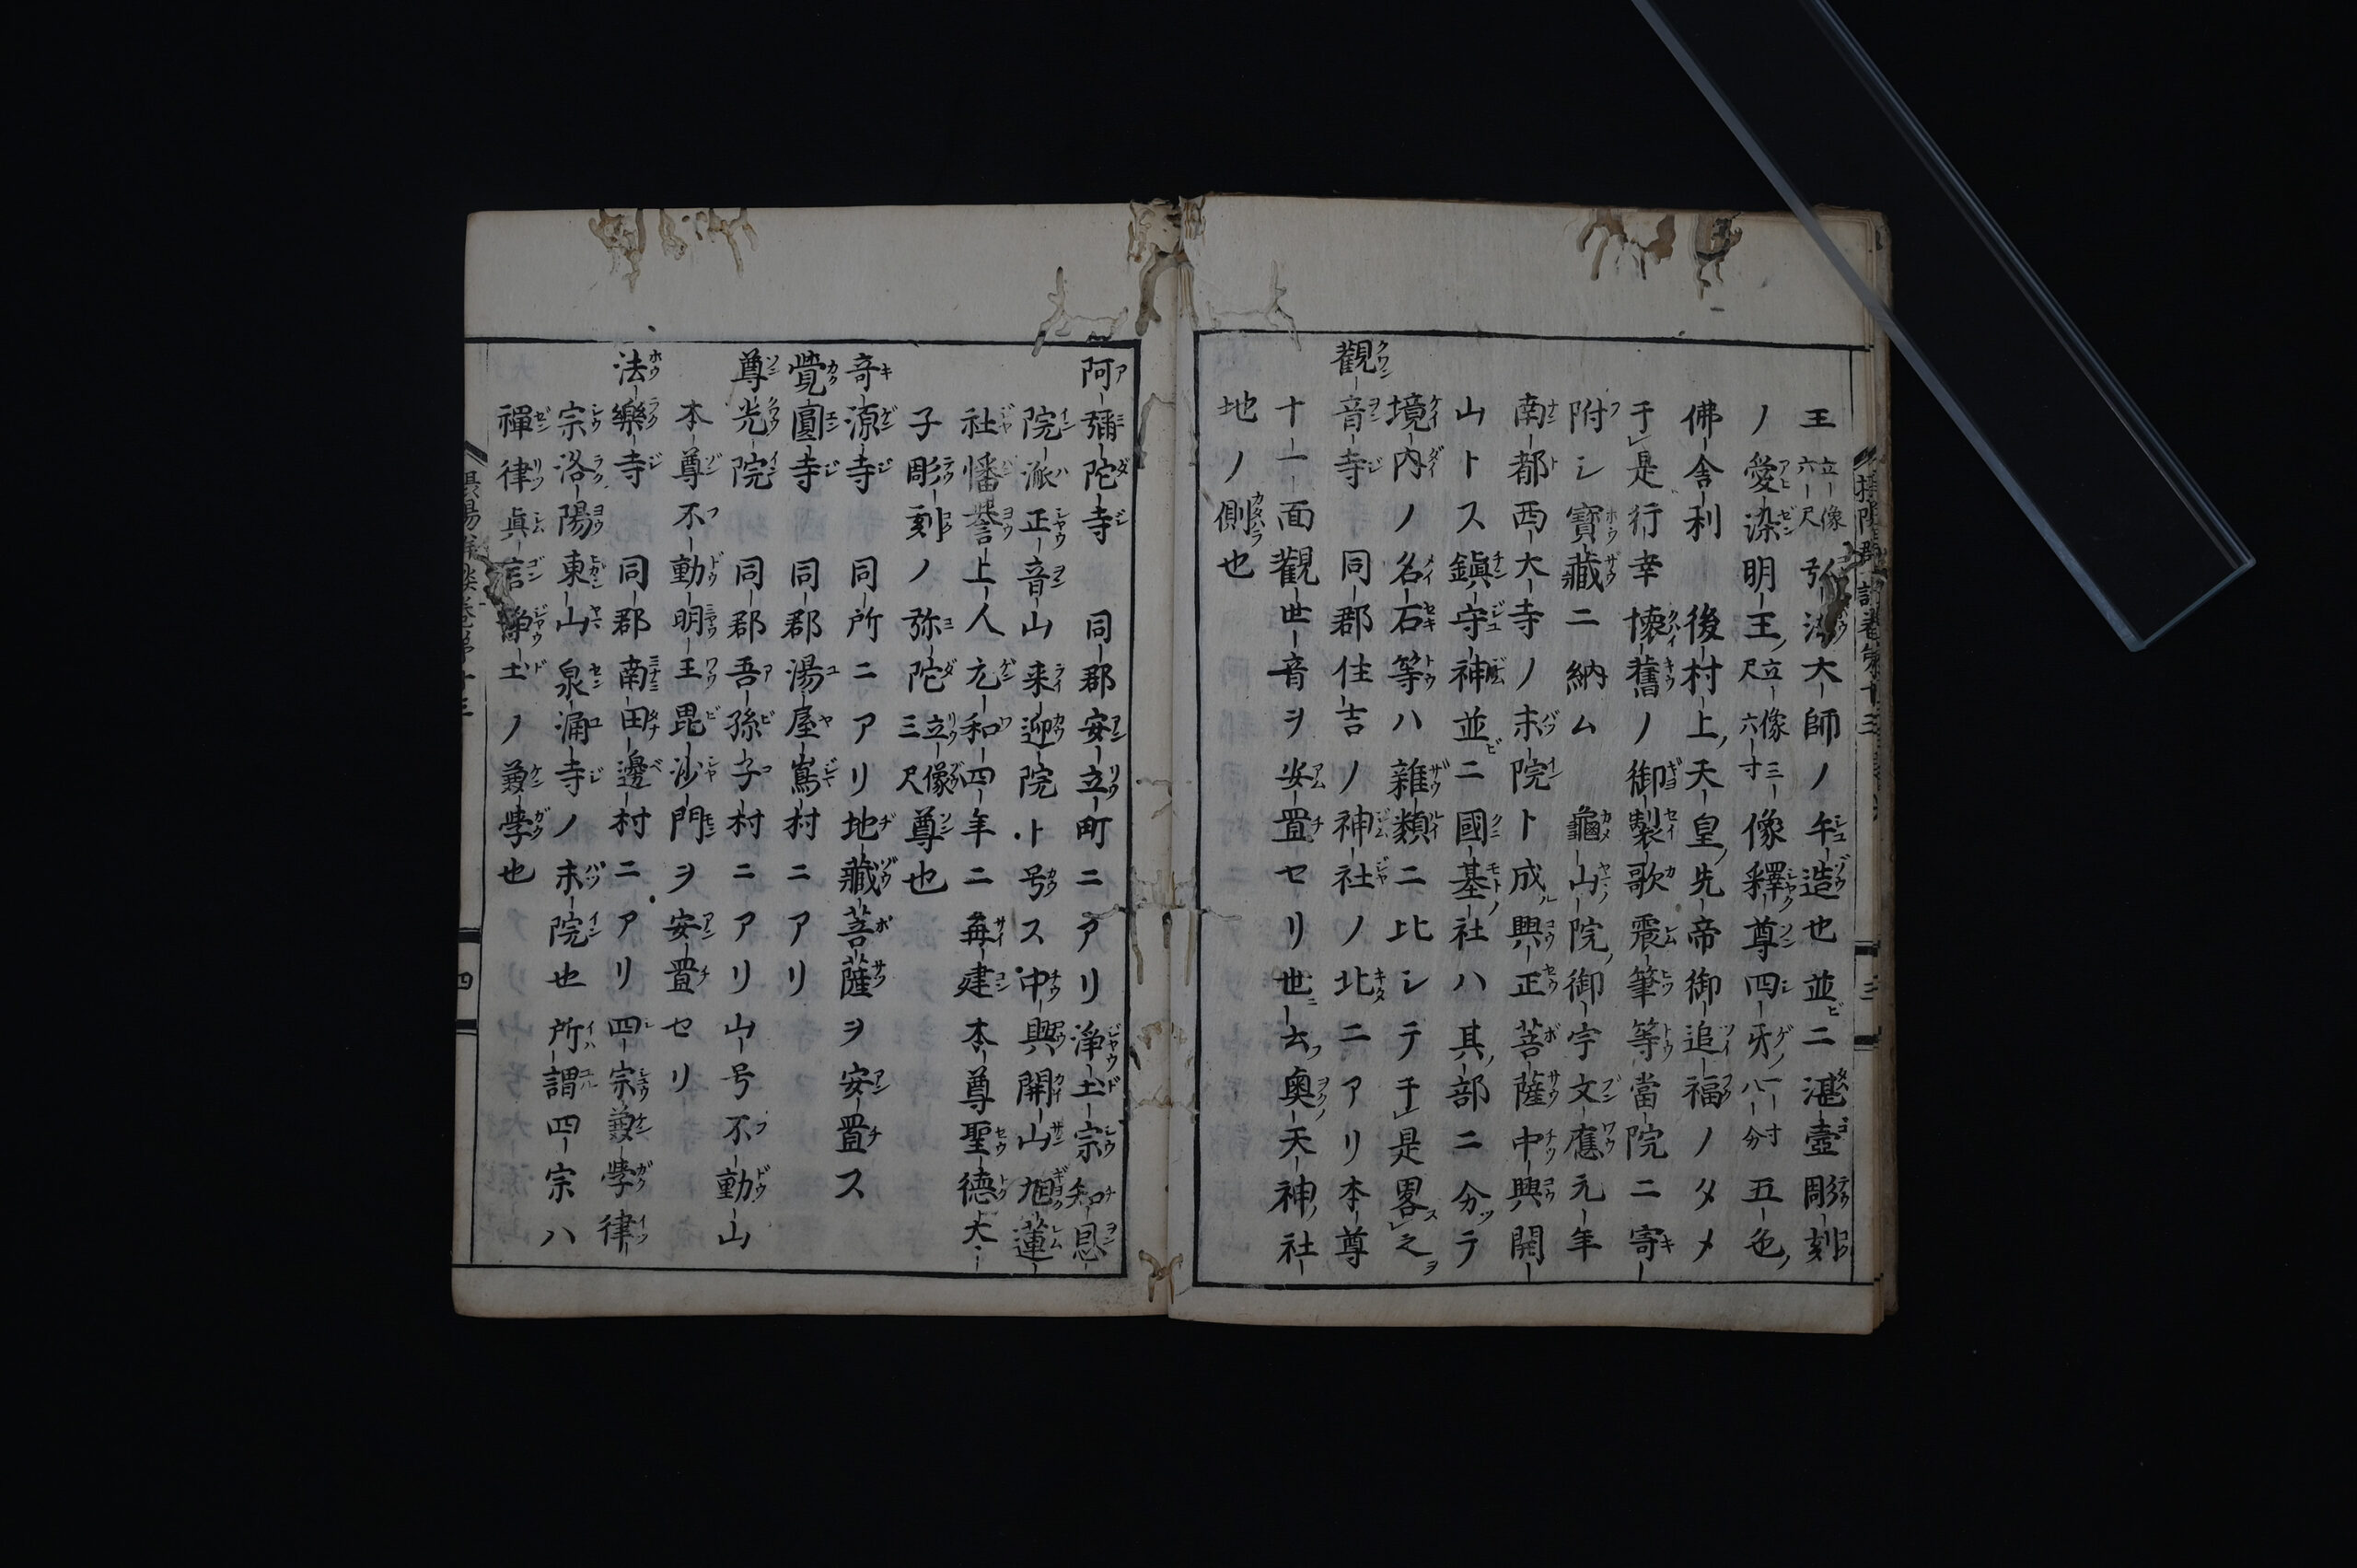 王立像六尺弘法大師ノ手造也並ニ湛壹彫刻
ノ愛染明王立像三尺六寸像釋尊四牙一寸八分五色
佛舎利　後村上天皇先帝御追福ノタメ
于是行幸懐舊ノ御製歌震筆等當院ニ寄
附シ寶藏ニ納ム　龜山院御宇文應元年
南都西大寺ノ末院ト成興正菩薩中興開
山トス鎭守神並ニ國基社ハ其部ニ分テ
境内ノ名石等ハ雜類ニ比シテ于是畧之
觀音寺　同郡住吉ノ神社ノ北ニアリ本尊
十一面觀世音ヲ安置セリ世ニ云奥天神社
地ノ側也
阿彌陀寺　同郡安立町ニアリ淨土宗知恩
院派正音山来迎院ト号ス中興開山旭蓮
社幡誉上人元和四年ニ再建本尊聖德太
子彫刻ノ弥陀立像三尺尊也
奇源寺　同所ニアリ地藏菩薩ヲ安置ス
覺圓寺　同郡湯屋嶌村ニアリ
尊光院　同郡吾孫子村ニアリ山号不動山
本尊不動明王毘沙門ヲ安置セリ
法樂寺　同郡南田邊村ニアリ四宗兼學律
宗洛陽東山泉涌寺ノ末院也所謂四宗ハ
禪律眞言淨土ノ兼學也
四